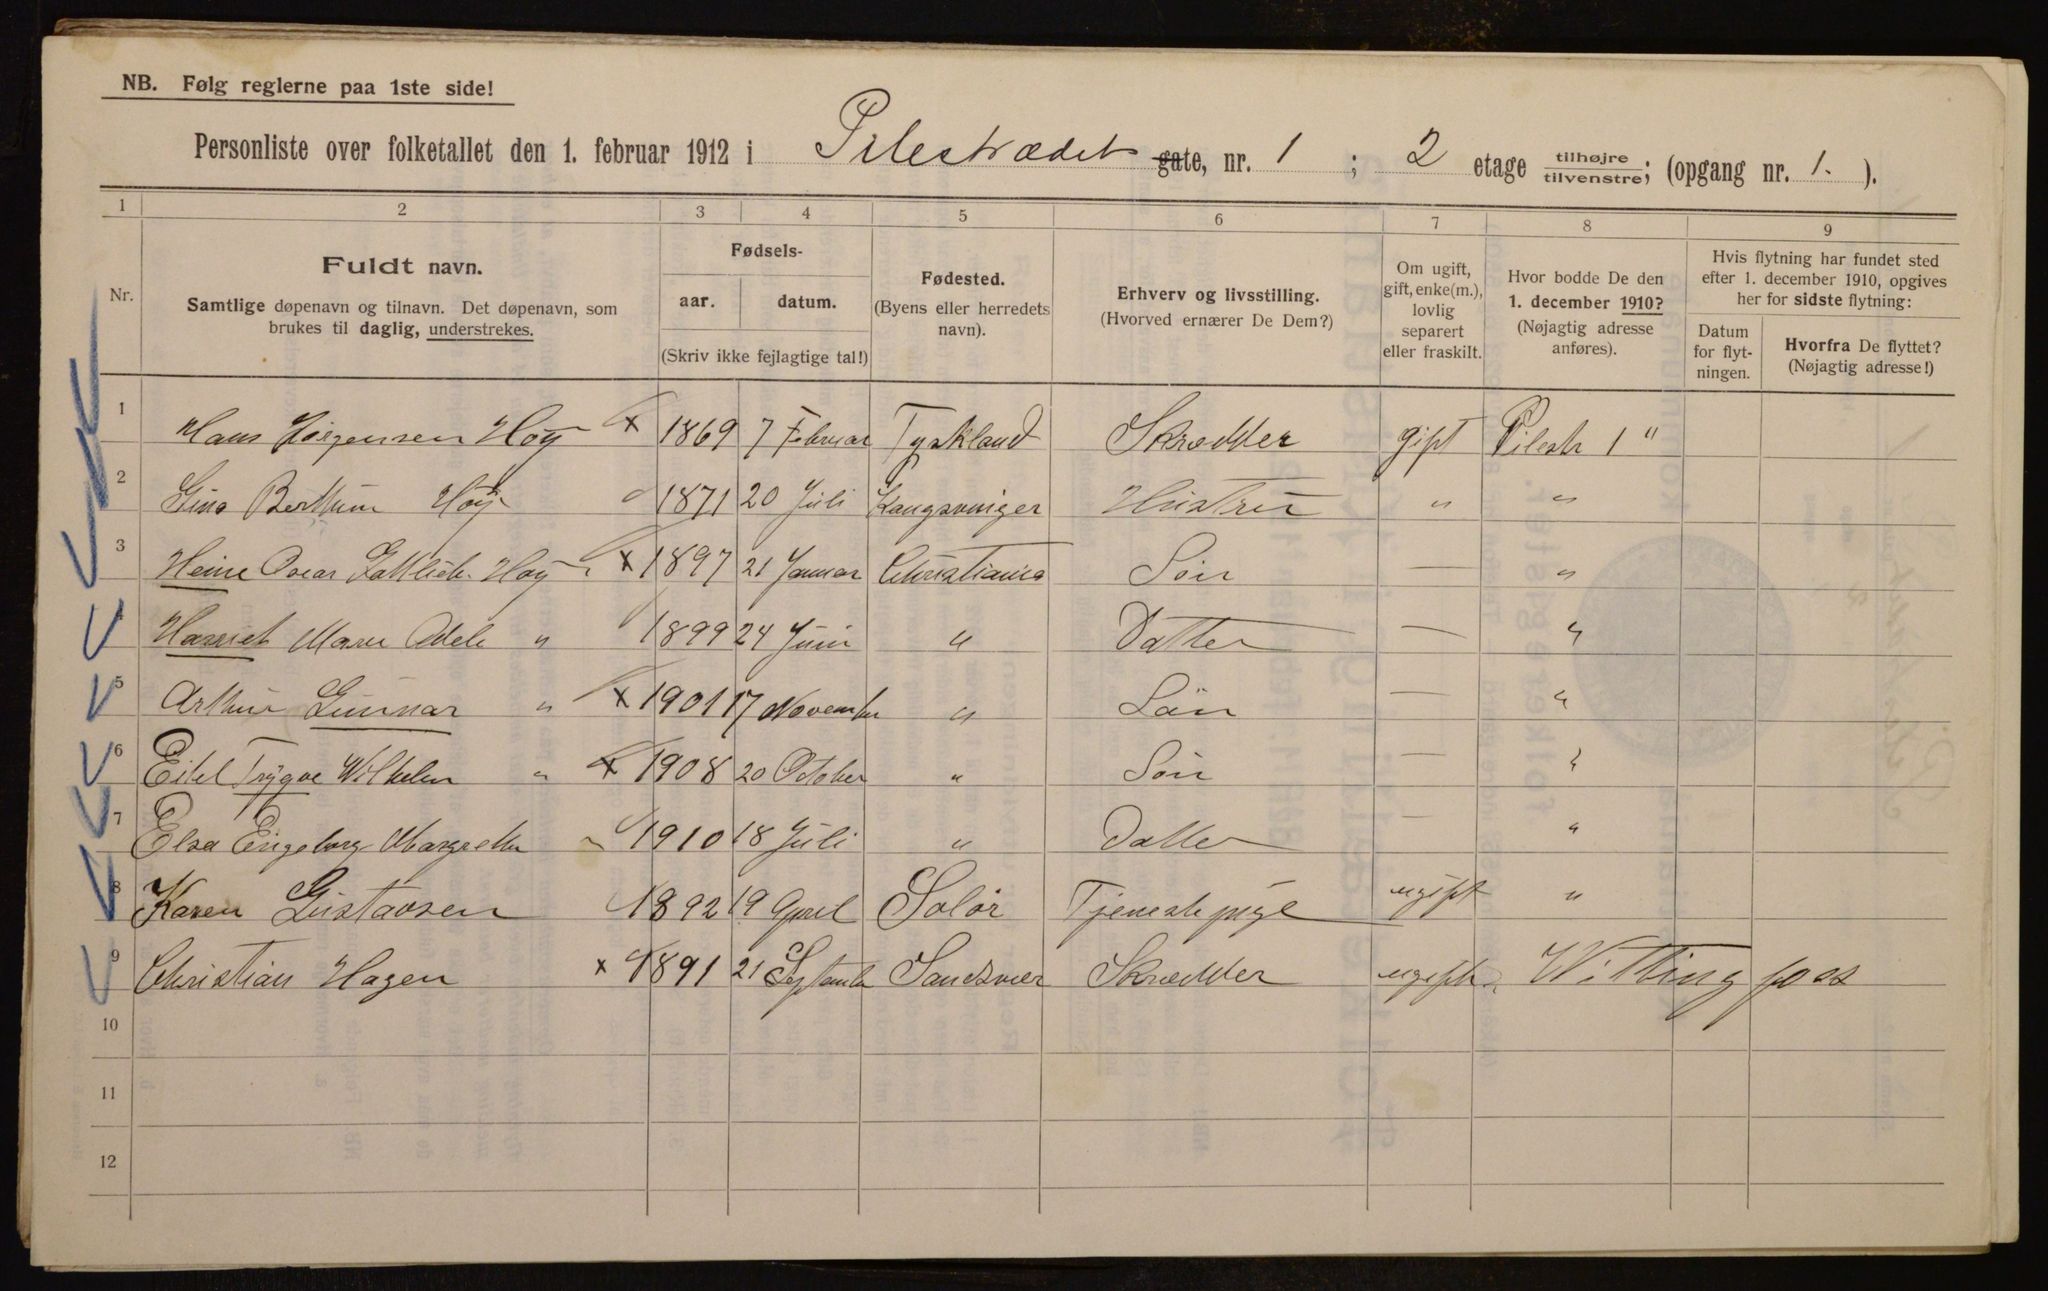 NB. Følg reglerne paa 1ste side!
Personliste over folketallet den 1. februar 1912 i Pilestrædet gate, nr. 1 ; 2 etage tilhøjre tilvenstre; (opgang nr. 1. ).
1 2 3 4 5 6 7 8 9
Nr.
Fuldt navn.
Samtlige døpenavn og tilnavn. Det døpenavn, som
brukes til daglig, understrekes.
Fødsels-
aar. datum.
(Skriv ikke fejlagtige tal!)
Fødested.
(Byens eller herredets
navn).
Erhverv og livsstilling.
(Hvorved ernærer De Dem?)
Om ugift,
gift, enke(m.),
lovlig
separert
eller fraskilt.
Hvor bodde De den
1. december 1910?
(Nøjagtig adresse
anføres).
Hvis flytning har fundet sted
efter 1. december 1910, opgives
her for sidste flytning:
Datum
for flyt-
ningen.
Hvorfra De flyttet?
(Nøjagtig adresse!)
1 Hans Jørgensen Høy x 1869 7 Februar Tyskland Skrædder gift Pilestr 1 "
2 Høy 1871 20 Juli Kongsvinger Hustru " "
3 Heine Oscar Gottlieb Høy x 1897 21 Januar Christiania Søn — "
4 Harriet Marie Adele " 1899 24 Juni " Datter — "
5 Arthur Gunnar " x 1901 17 November " Søn — "
6 Eitel Trygve Wilhelm " x 1908 20 October " Søn — "
7 Elsa Eingeborg Margrethe " 1910 18 Juli " Datter — "
8 Karen Gustavsen 1892 19 April Solør Tjenestepige ugift "
9 Christian Hagen x 1891 21 September Sandsvær Skrædder ugift Wittingfoss
10
11
12